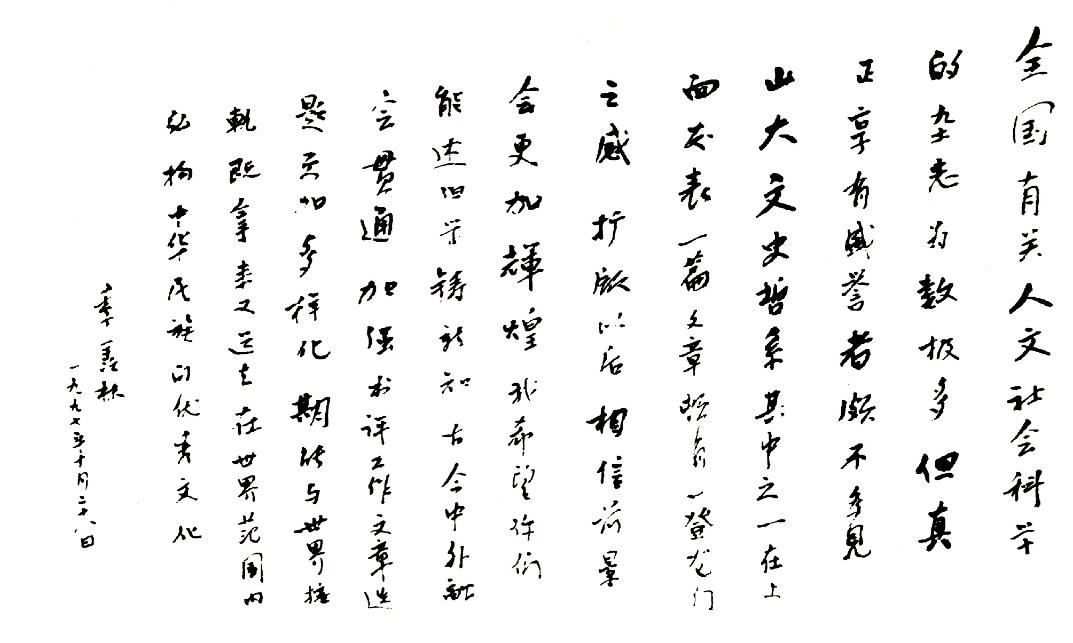 全国有关人文社会科学
的杂志为数极多但真
正享有盛誉者颇不多见
山大文史哲系其中之一在上
面发表一篇文章有一登龙门
之感 扩版以后相信前景
会更加輝煌我希望你们
能述旧学铸新知古今中外融
会贯通加强书评工作文章选
题更加多样化期能与世界接
轨既拿来又送去在世界范围内
弘扬中华民族的优秀文化
季羡林
一九九七年十月二十八日